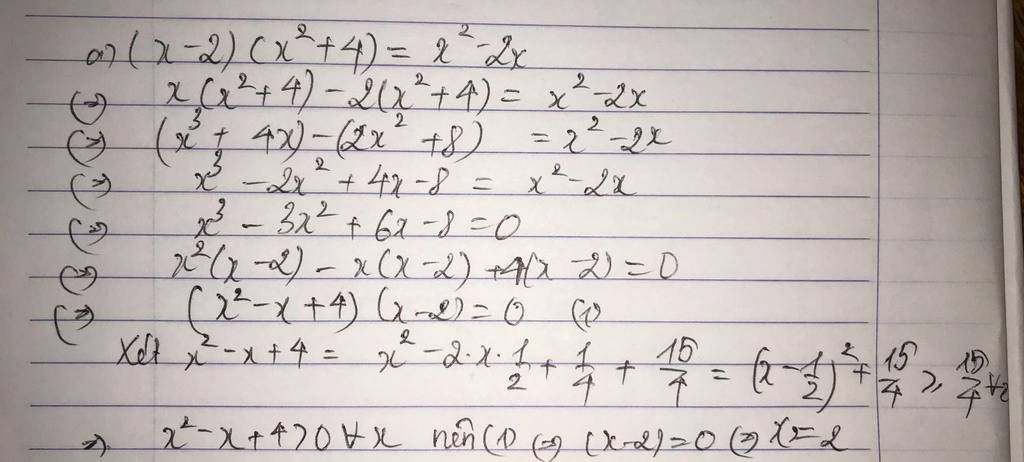 a) (x-2)(x²+4) = x²-2x
(=) x(x²+4) - 2(x²+4) = x²-2x
(=) (x³ + 4x) - (2x² +8) = x²-2x
(=) x³ - 2x² + 4x - 8 = x²-2x
(=) x³ - 3x² + 6x - 8 = 0
(=) x²(x-2) - x(x-2) + 4(x-2) = 0
(=) (x²-x+4)(x-2) = 0 (1)
Xét x²-x+4 = x² - 2·x·1/2 + 1/4 + 15/4 = (x - 1/2)² + 15/4 ≥ 15/4 ∀x
=> x²-x+4 > 0 ∀x nên (1) (=) (x-2) = 0 (=) x = 2